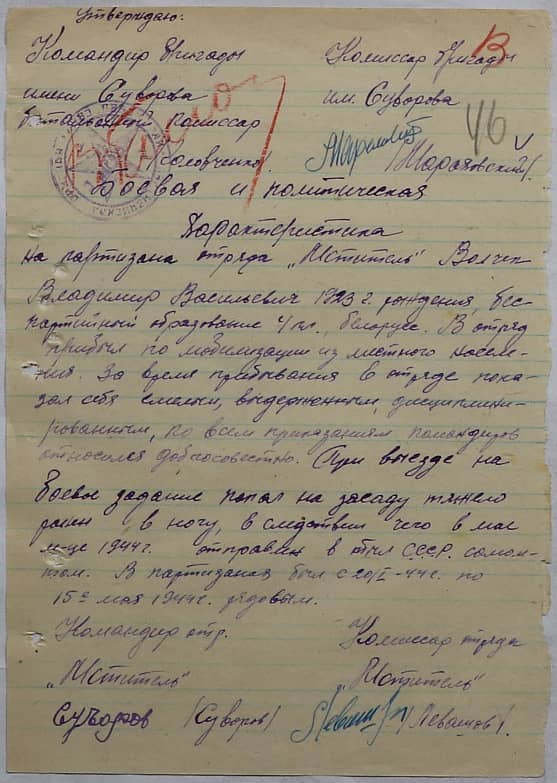 Утверждаю:
Командир бригады Комиссар бригады
имени Суворова им. Суворова
Батальонный Комиссар 46
/Соловченко/. /Мараховский/.
Боевая и политическая
характеристика
На партизана отряда „Мститель" Волчек
Владимир Васильевич 1923 г. рождения, бес-
партейный образование 4 кл., белорусс. В отряд
прибыл по мобилизации из местного населе-
ния. За время пребывания в отряде пока-
зал себя смелым, выдержанным, дисциплини-
рованным, ко всем приказаниям командиров
относился добросовестно. При выезде на
боевое задание попал на засаду тяжело
ранен в ногу в следствии чего в мае
м-це 1944г. отправлен в тыл СССР самоле-
том. В партизанах был с 20/I-44г. по
15е мая 1944г. рядовым.
Командир отр. Комиссар отряда
„Мститель" „Мститель"
Суворов /Суворов/ /Левашов/.